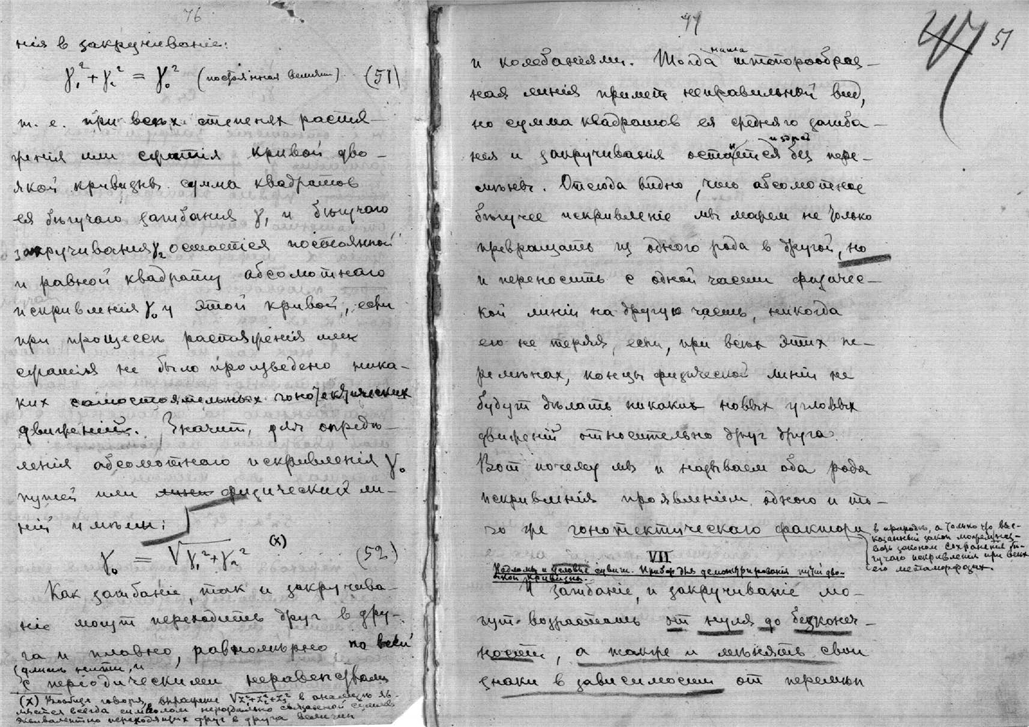 76
нія в закручиваніе:
γ₁² + γ₂² = γ₀² (постоянная величина) (51)
т. е. при всѣх степенях растя-
женія или сжатія кривой дво-
якой кривизны сумма квадратов
ея бѣгучаго загибанія γ₁ и бѣгучаго
закручиванія γ₂ остается постоянной
и равной квадрату абсолютнаго
искривленія γ₀ у этой кривой, если
при процессѣ растяженія или
сжатія не было произведено ника-
ких самостоятельных гонотектических
движеній. Значит, для опредѣ-
ленія абсолютнаго искривленія γ₀
путей или физических ли-
ній имѣем:
γ₀ = √γ₁²+γ₂² (x) (52)
Как загибаніе, так и закручива-
ніе могут переходить друг в дру-
га и плавно, равномѣрно по всей
длинѣ нити, и
с періодическими неравенствами
(x) Вообще говоря, выраженіе в анализѣ яв-
ляется всегда символом суммы
эквивалентно переходящих друг в друга величин
77
47 51
и колебаніями. Тогда наша штопорообраз-
ная линія примет неправильный вид,
но сумма квадратов ея средняго загиба-
нія и закручиванія остается без пере-
мѣны. Отсюда видно, что абсолютное
бѣгучее искривленіе мы можем не только
превращать из одного рода в другой, но
и переносить с одной части физичес-
кой линіи на другую часть, никогда
его не теряя, если, при всѣх этих пе-
ремѣнах, концы физической линіи не
будут дѣлать никаких новых угловых
движеній относительно друг друга.
Вот почему мы и называем оба рода
искривленія проявленіем одного и то-
го же гонотектическаго фактора
в природѣ, а только что выс-
казанный закон можем наз-
вать законом сохраненія бѣ-
гучаго искривленія при всѣх
его метаморфозах.
VII
Надломы и угловые сдвиги. Прибор для демонстрированія путей дво-
якой кривизны.
И загибаніе, и закручиваніе мо-
гут возрастать от нуля до безконеч-
ности, а также и мѣнять свои
знаки в зависимости от перемѣн